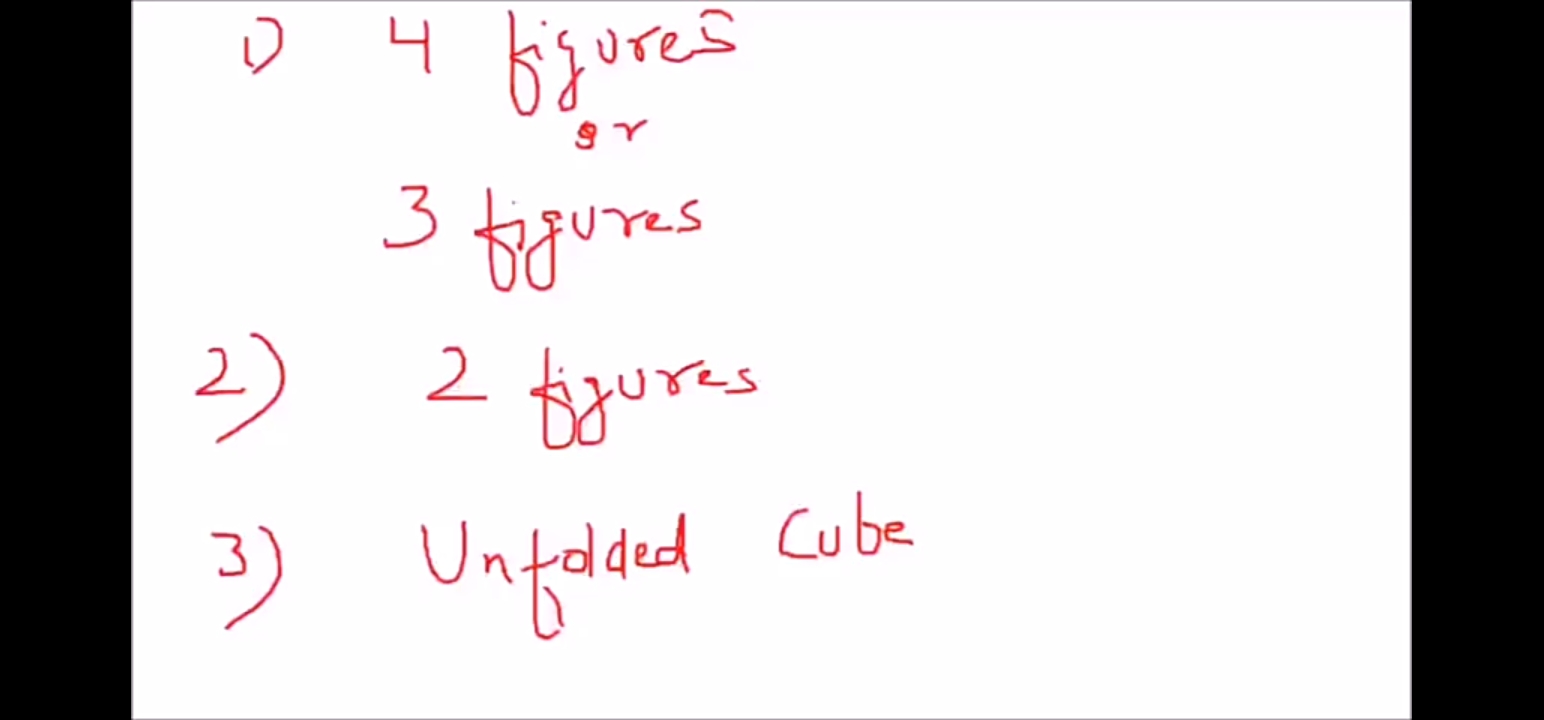 1) 4 figures
or
3 figures
2) 2 figures
3) Unfolded Cube